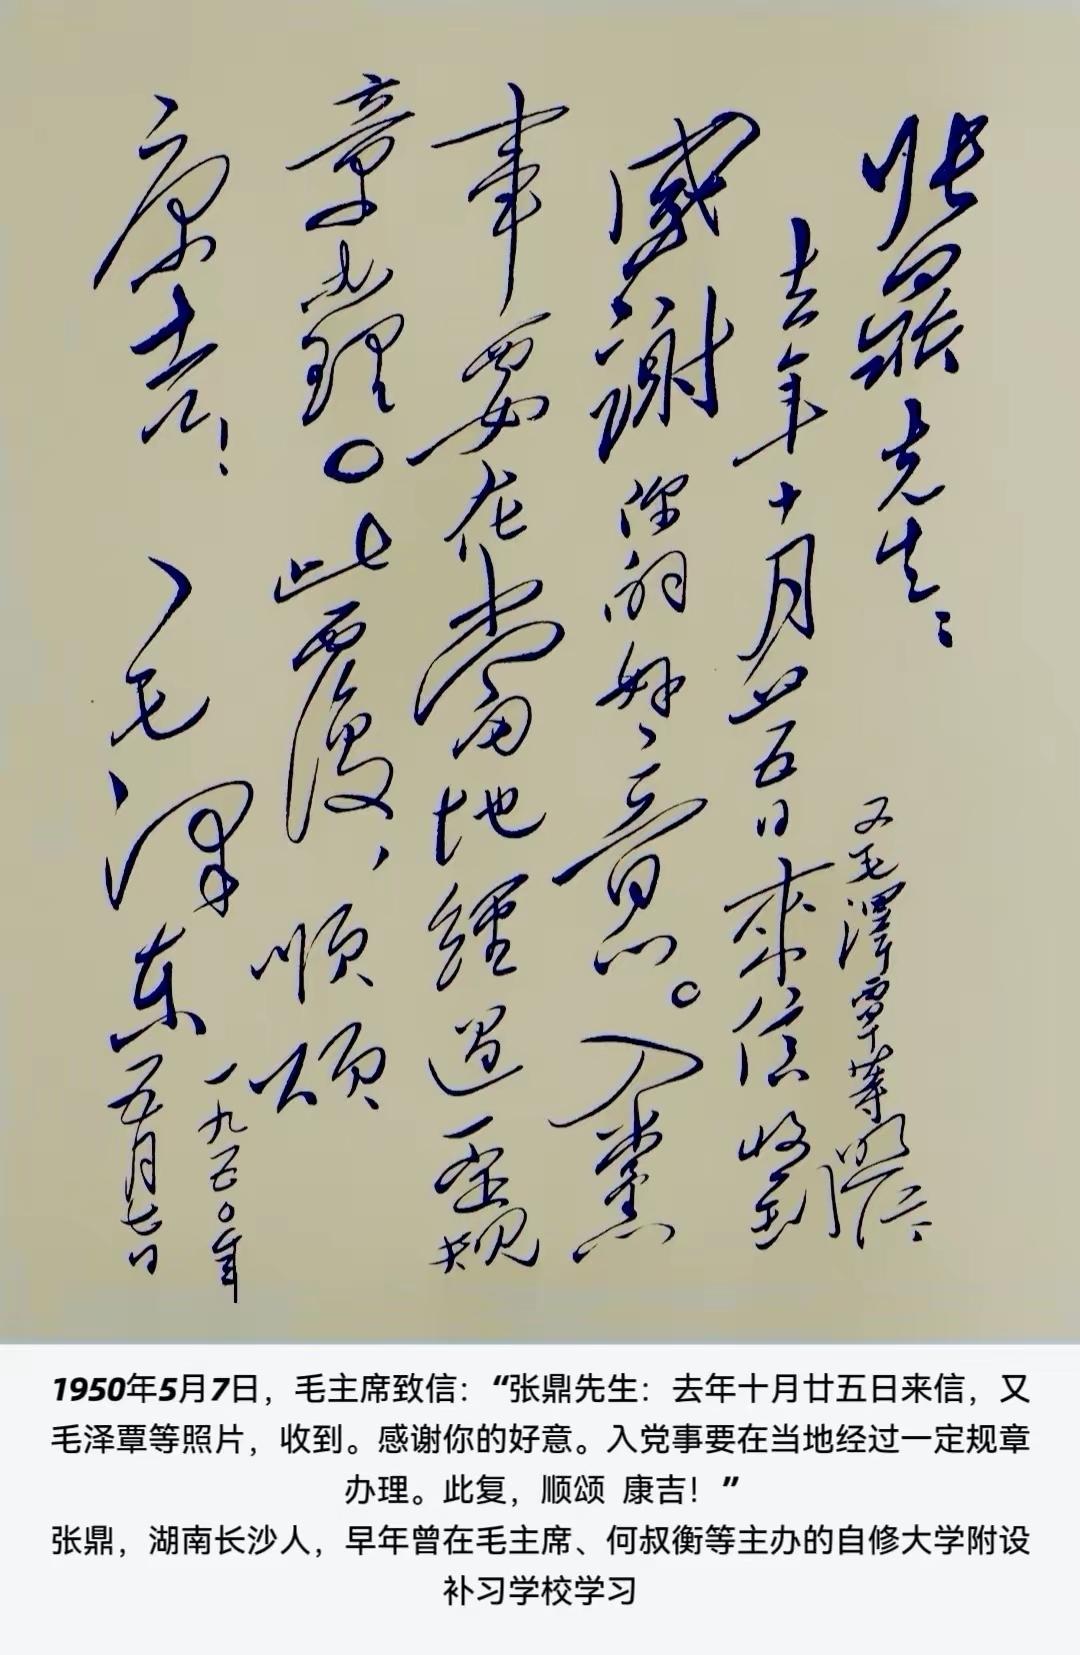 张鼎先生：
去年十月廿五日来信收到
又毛泽覃等照片
感谢你的好意。入党
事要在当地经过一定规
章办理。此覆，顺颂
康吉！
毛泽东
一九五〇年
五月七日
1950年5月7日，毛主席致信：“张鼎先生：去年十月廿五日来信，又
毛泽覃等照片，收到。感谢你的好意。入党事要在当地经过一定规章
办理。此复，顺颂 康吉！”
张鼎，湖南长沙人，早年曾在毛主席、何叔衡等主办的自修大学附设
补习学校学习